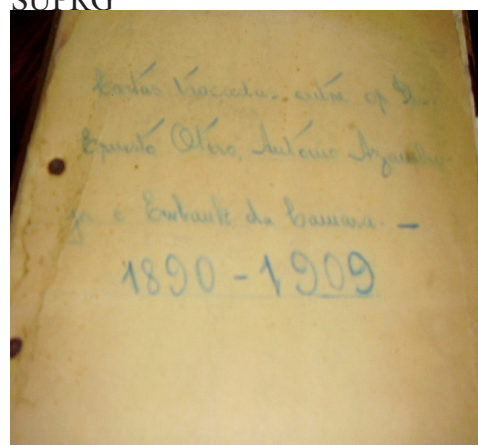 SUPRG
Cartas trocadas entre os Drs.
Ernesto Otero, Antonio Azambu-
ja e Ewbank da Camara. —
1890 - 1909